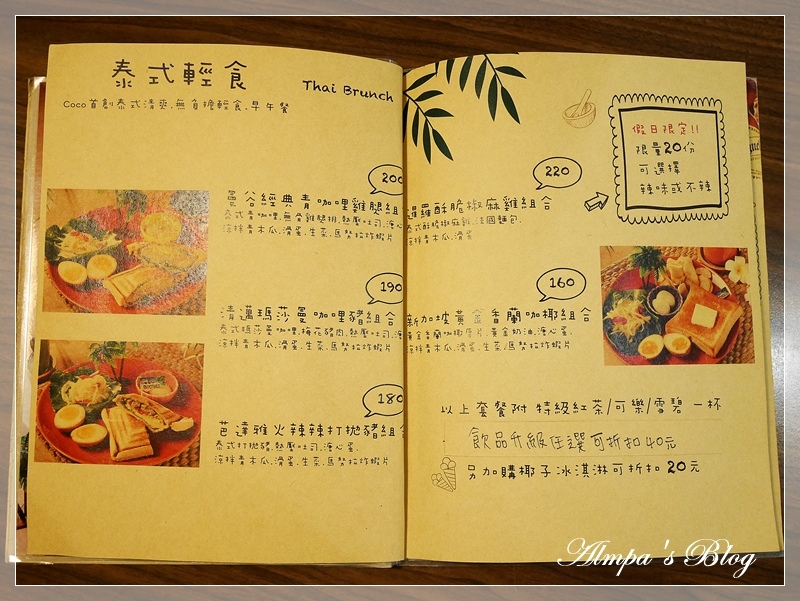 泰式輕食
Thai Brunch
Coco首創泰式清爽.無負擔輕食.早午餐
200
曼谷經典青咖哩雞腿組合
泰式青咖哩.無骨雞腿排.熱壓吐司.溏心
涼拌青木瓜.滑蛋.生菜.馬努拉炸蝦片
190
清邁瑪莎曼咖哩豬組合
泰式瑪莎曼咖哩.梅花豬肉.熱壓吐司.溏
涼拌青木瓜.滑蛋.生菜.馬努拉炸蝦片
180
芭達雅火辣辣打拋豬組合
泰式打拋豬.熱壓吐司.溏心蛋.
涼拌青木瓜.滑蛋.生菜.馬努拉炸蝦片
假日限定!!
限量20份
可選擇
辣味或不辣
220
暹羅酥脆椒麻雞組合
泰式酥脆椒麻雞.法國麵包.
涼拌青木瓜.滑蛋
160
新加坡黃金香蘭咖椰組合
黃金香蘭咖椰厚片.黃金奶油.溏心蛋.
涼拌青木瓜.滑蛋.生菜.馬努拉炸蝦片
以上套餐附 特級紅茶/可樂/雪碧 一杯
飲品升級任選可折扣40元
另加購椰子冰淇淋可折扣 20元
Almpa's Blog